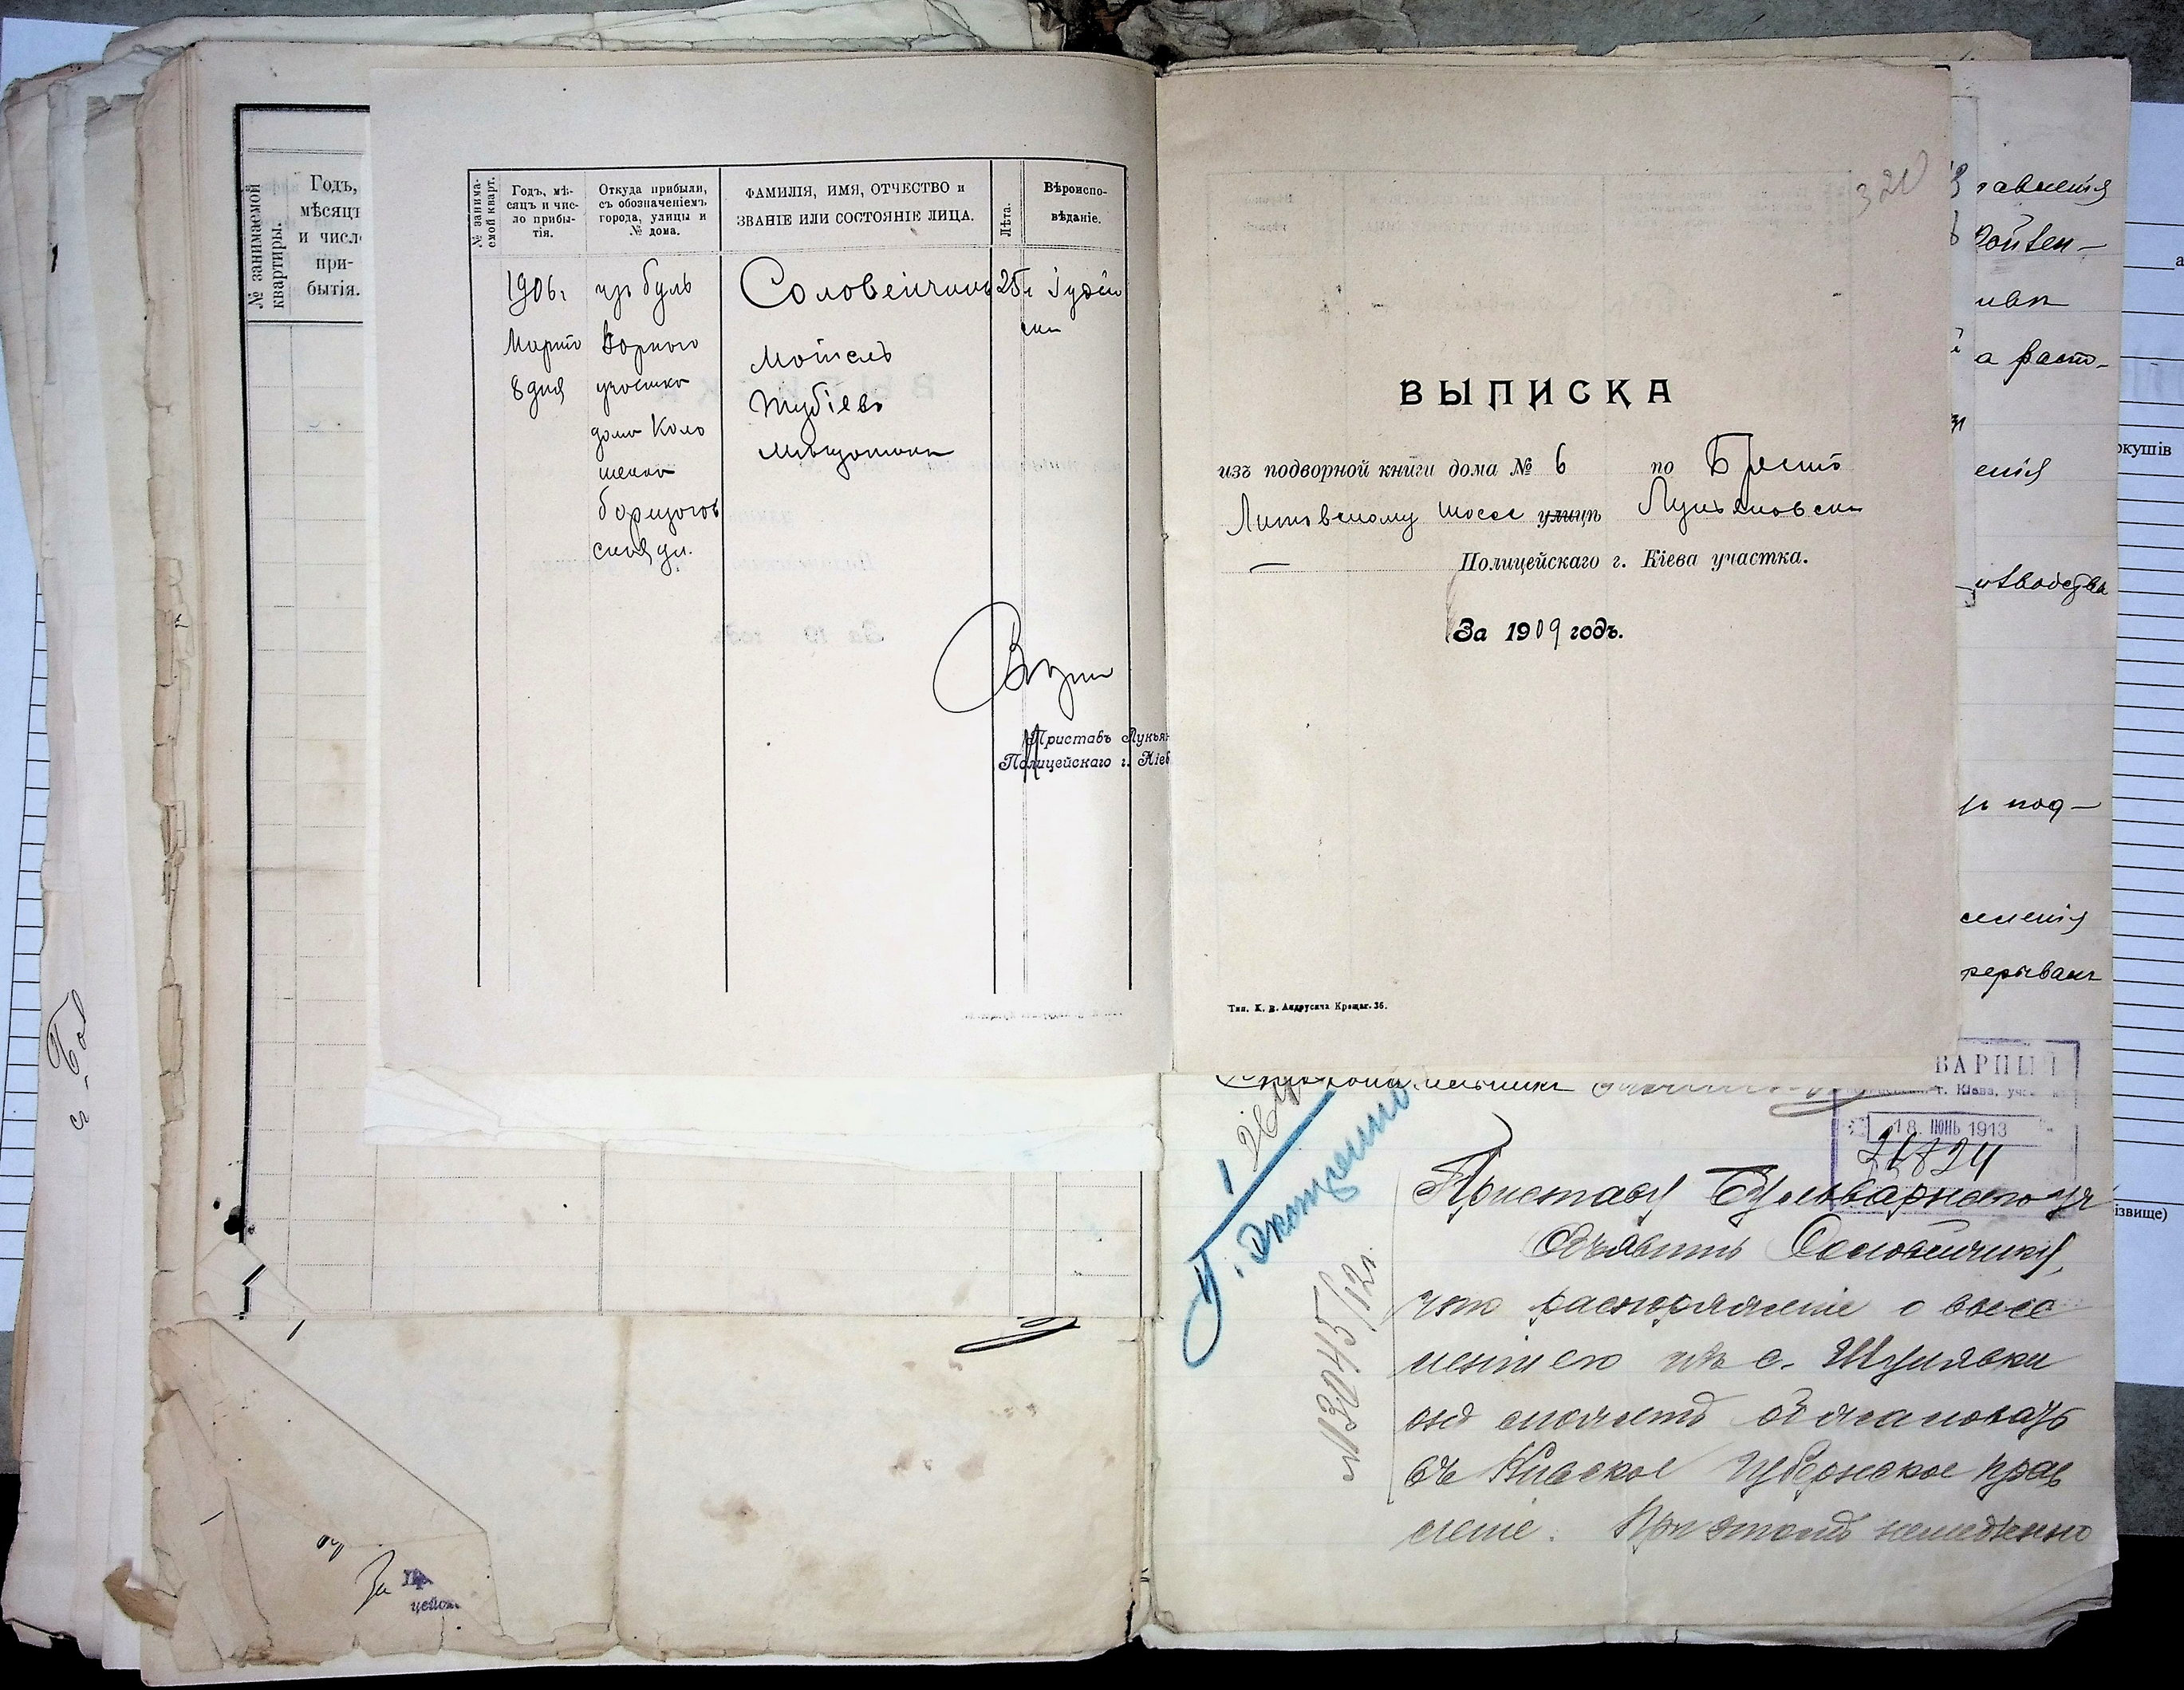 № занимаемой квартиры.
Годъ,
мѣсяцъ
и число
при-
бытія.
№ занима-
емой кварт.
Годъ, мѣ-
сяцъ и чис-
ло прибы-
тія.
Откуда прибыли,
съ обозначеніемъ
города, улицы и
№ дома.
ФАМИЛІЯ, ИМЯ, ОТЧЕСТВО и
ЗВАНІЕ ИЛИ СОСТОЯНІЕ ЛИЦА.
Лѣта.
Вѣроиспо-
вѣданіе.
1906 г
Марта
8 дня
изъ Буль
варного
участка
дома Коло
борщагов
ская ул.
Соловейчикъ
Мотель
Тубіевъ
мѣщанинъ
25 л
Іудей
ск
Приставъ Лукья
Полицейскаго г. Кіев
320
ВЫПИСКА
изъ подворной книги дома № 6 по Брестъ
Литовскому шоссе улицѣ Лукьяновск
Полицейскаго г. Кіева участка.
За 1909 годъ.
Тип. К. В. Андрусича Крещат. 36.
равленія
а раст-
енія
изводства
ъ под-
селенія
ркушів
ізвище)
ВАРНЫЙ
г. Кіева, уч
18. ІЮНЬ 1913
21824
№13045/12 г.
Приставу Бульварного уч
Объявить Соловейчику,
что распоряженіе о высе
леніи его изъ с. Шулявки
онъ можетъ обжаловать
въ Кіевское Губернское прав
леніе. При этомъ немедленно
За
цейск